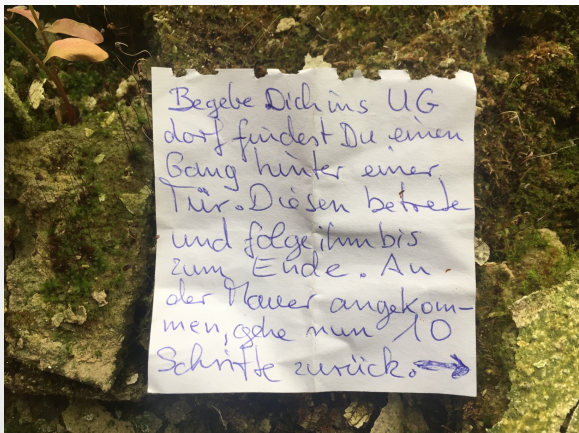 Begebe Dich ins UG
dorf findest Du einen
Gang hinter einer
Tür. Diesen betrete
und folge ihm bis
zum Ende. An
der Mauer angekom-
men, gehe nun 10
Schritte zurück. →